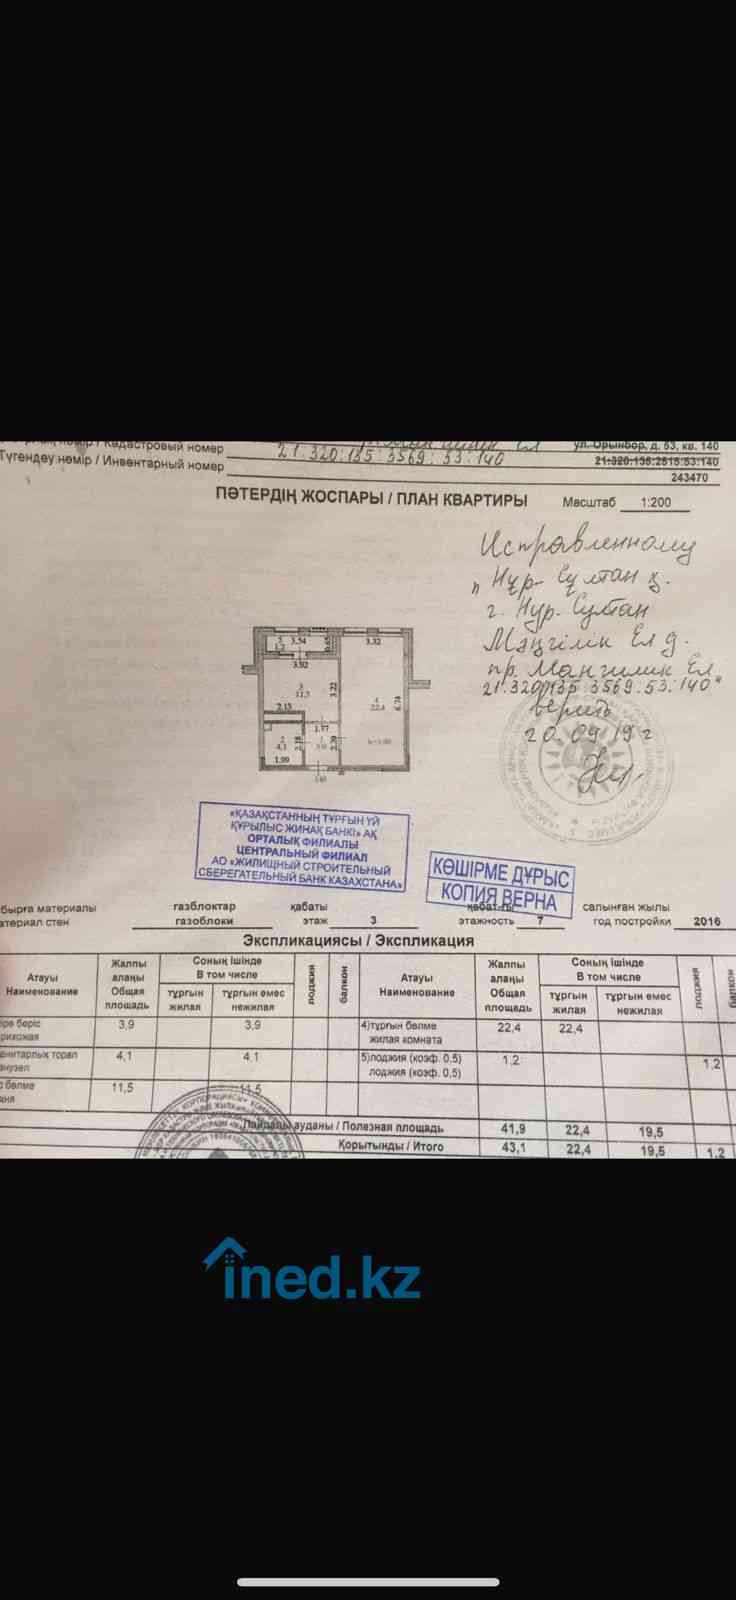 Кадастровый номер
ул. Орынбор, д. 53, кв. 140
Түгендеу нөмір / Инвентарный номер
21:320:135:3569:53:140
21:320:135:2515:53:140
243470
ПӘТЕРДІҢ ЖОСПАРЫ / ПЛАН КВАРТИРЫ
Масштаб 1:200
Исправленному
"Нұр-Сұлтан қ.
г. Нур-Султан
Мәңгілік Ел д.
пр. Мангилик Ел
21:320:135:3569:53:140"
верить
20.09.19 г
5 3.54 0.65 3.32
1,2
3.92
3
11,5 3.22
4
22,4 6.74
2.13
1.77
2
4,1 2.18
1
3,9 2.20
1.99
«ҚАЗАҚСТАННЫҢ ТҰРҒЫН ҮЙ
ҚҰРЫЛЫС ЖИНАҚ БАНКІ» АҚ
ОРТАЛЫҚ ФИЛИАЛЫ
ЦЕНТРАЛЬНЫЙ ФИЛИАЛ
АО «ЖИЛИЩНЫЙ СТРОИТЕЛЬНЫЙ
СБЕРЕГАТЕЛЬНЫЙ БАНК КАЗАХСТАНА»
КӨШІРМЕ ДҰРЫС
КОПИЯ ВЕРНА
материалы газблоктар қабаты салынған жылы
стен газоблоки этаж 3 этажность 7 год постройки 2016
Экспликациясы / Экспликация
Атауы
Наименование
Жалпы
алаңы
Общая
площадь
Соның ішінде
В том числе
тұрғын
жилая
тұрғын емес
нежилая
лоджия
балкон
Атауы
Наименование
Жалпы
алаңы
Общая
площадь
Соның ішінде
В том числе
тұрғын
жилая
тұрғын емес
нежилая
лоджия
балкон
беріс 3,9 3,9
4)тұрғын бөлме 22,4 22,4
жилая комната
торап 4,1 4,1
5)лоджия (коэф. 0,5) 1,2 1,2
лоджия (коэф. 0,5)
бөлме 11,5 11,5
Пайдалы ауданы / Полезная площадь 41,9 22,4 19,5
Қорытынды / Итого 43,1 22,4 19,5 1,2
ined.kz